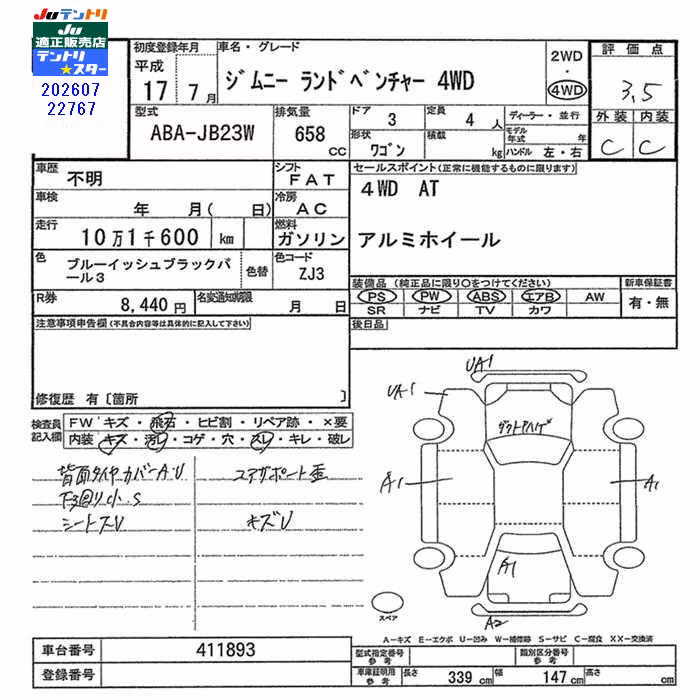 JUテントリ
JU
適正販売店
テントリ
★スター
202607
22767
初度登録年月
平成
17 7月
車名・グレード
ジムニー ランドベンチャー 4WD
2WD
・
4WD
評価点
3.5
外装 内装
C C
型式
ABA-JB23W
排気量
658
CC
ドア
3
定員
4 人
形状
ワゴン
積載
kg
ディーラー・並行
モデル年式 年
ハンドル 左・右
車歴
不明
シフト
FAT
車検
年 月( 日)
冷房
AC
走行
10万1千600 km
燃料
ガソリン
色
ブルーイッシュブラックパール3
色替
色コード
ZJ3
R券
8,440円
名変通知期限
月 日
セールスポイント(正常に機能するものに限ります)
4WD AT
アルミホイール
装備品 (純正品に限り〇をつけてください)
PS PW ABS エアB AW
SR ナビ TV カワ
新車保証書
有・無
後日品
注意事項申告欄(不具合内容等は具体的に記入して下さい)
修復歴 有〔箇所 〕
検査員記入欄
FW キズ・飛石・ヒビ割・リペア跡・×要
内装 キズ・汚レ・コゲ・穴・スレ・キレ・破レ
背面タイヤカバーA・U
下廻り小S
シートスU
キズU
UA1
UA1
A1
A1
A1
A2
スペア
A-キズ E-エクボ U-凹み W-補修跡 S-サビ C-腐食 XX-交換済
車台番号
411893
登録番号
型式指定番号
参考
類別区分番号
参考
車庫証明用
参考
長さ 339 cm
幅 147 cm
高さ cm